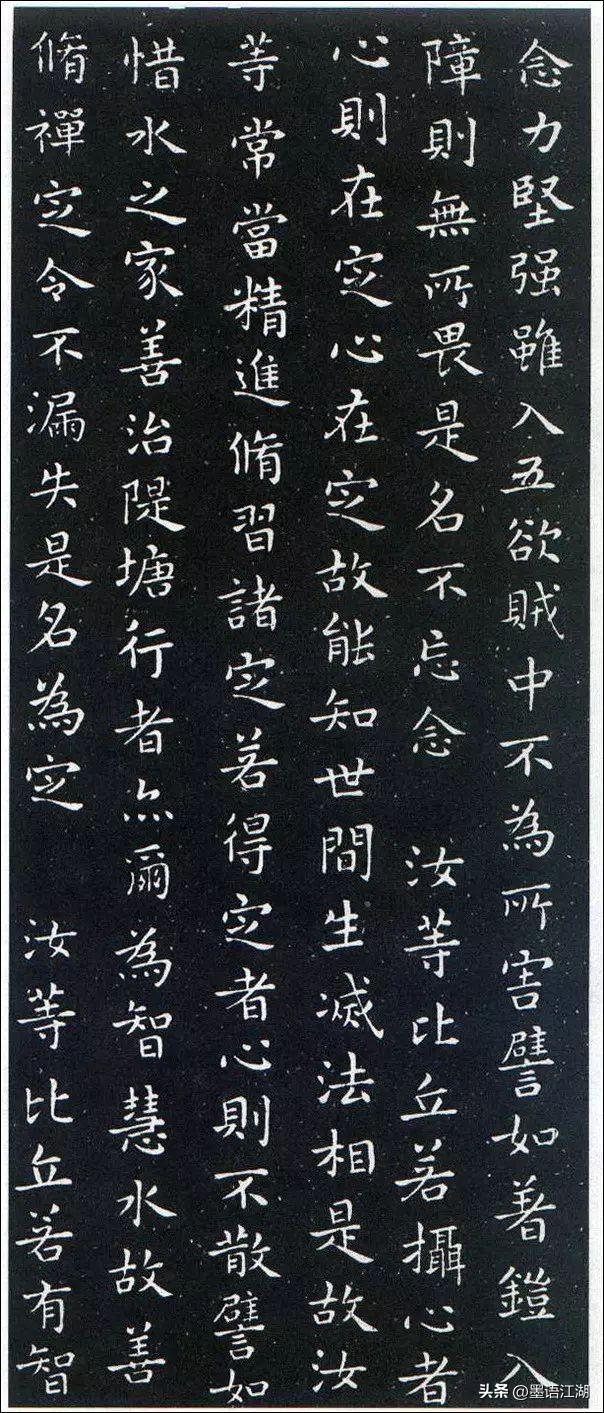 念力堅强雖入五欲賊中不為所害譬如著鎧入
障則無所畏是名不忘念 汝等比丘若攝心者
心則在定心在定故能知世間生滅法相是故汝
等常當精進脩習諸定若得定者心則不散譬如
惜水之家善治隄塘行者亦爾為智慧水故善
脩禪定令不漏失是名為定 汝等比丘若有智
头条 @墨语江湖